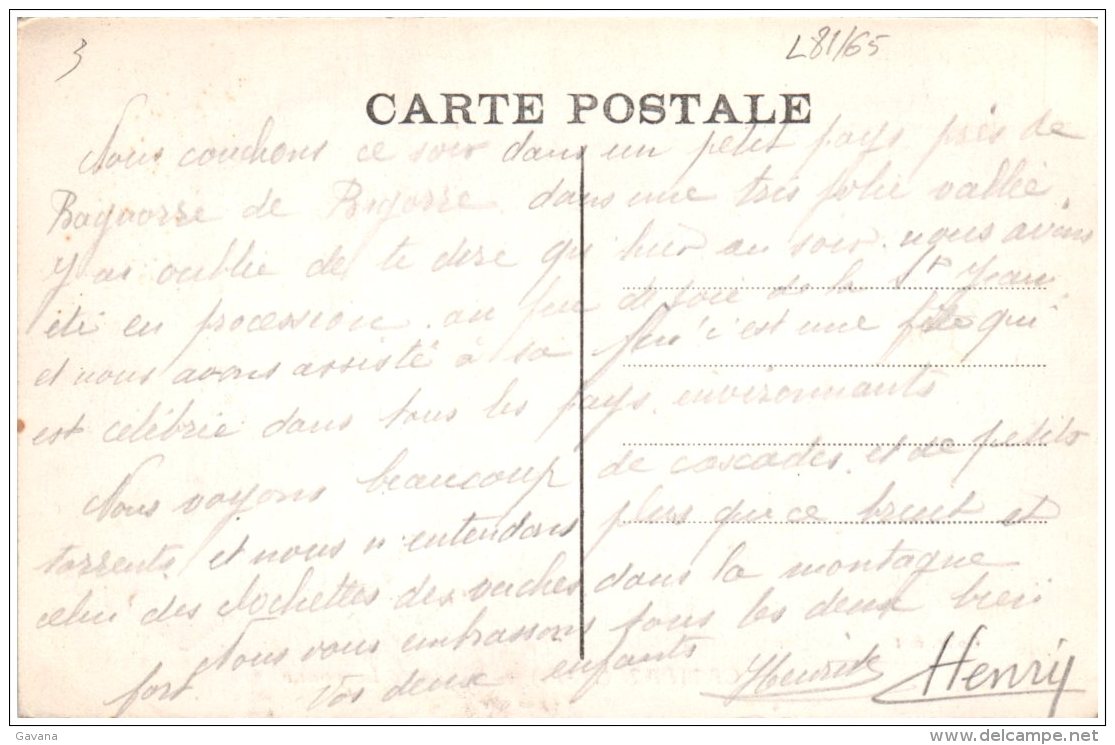 3
L81/65
CARTE POSTALE
Nous couchons ce soir dans un petit pays près de
Bagnorre de Bigorre dans une très jolie vallée.
J'ai oublié de te dire qu' hier au soir nous avons
été en procession au feu de joie de la St Jean
et nous avons assisté à sa feu c'est une fête qui
est célébrée dans tous les pays environnants
Nous voyons beaucoup de cascades et de petits
torrents et nous n'entendons plus que ce bruit et
celui des clochettes des vaches dans la montagne
Nous vous embrassons tous les deux bien
fort. Vos deux enfants
Henry
Gavana
delcampe.net